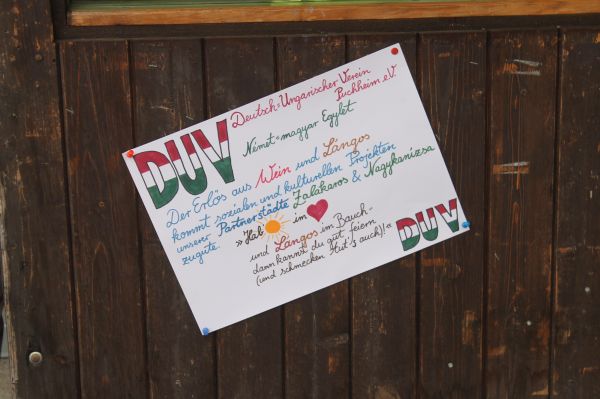 DUV
Deutsch=Ungarischer Verein
Puchheim e.V.
Német=magyar Egylet
Der Erlös aus Wein und Lángos
kommt sozialen und kulturellen Projekten
unserer Partnerstädte Zalakaros & Nagykanizsa
zugute.
»Hab im
und Lángos im Bauch-
dann kannst du gut feiern
(und schmecken tut's auch)!«
DUV